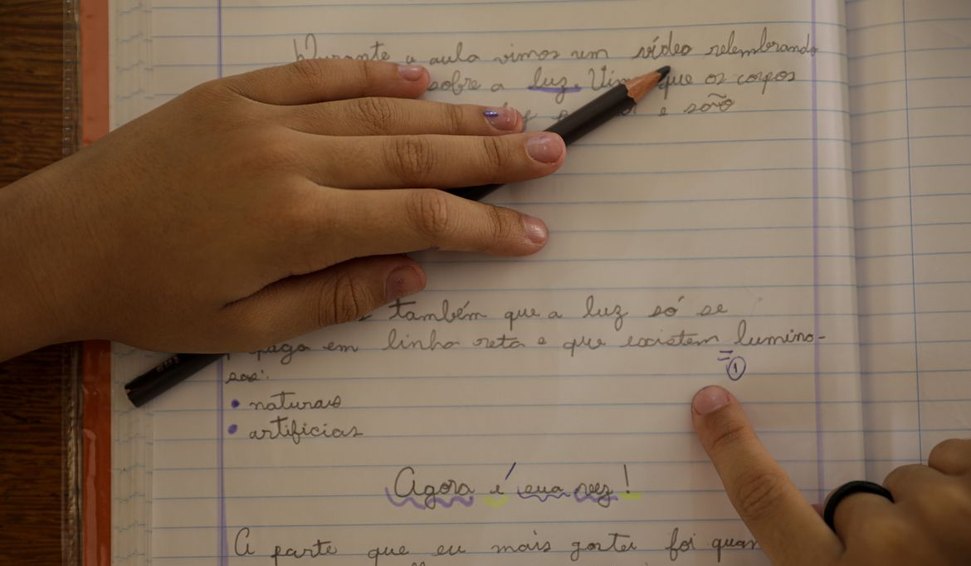 Durante a aula vimos um vídeo relembrando
sobre a luz. que os corpos
e são
também que a luz só se
em linha reta e que existem lumino-
sos:
• naturais
• artificias
= ①
Agora é sua vez!
A parte que eu mais gostei foi